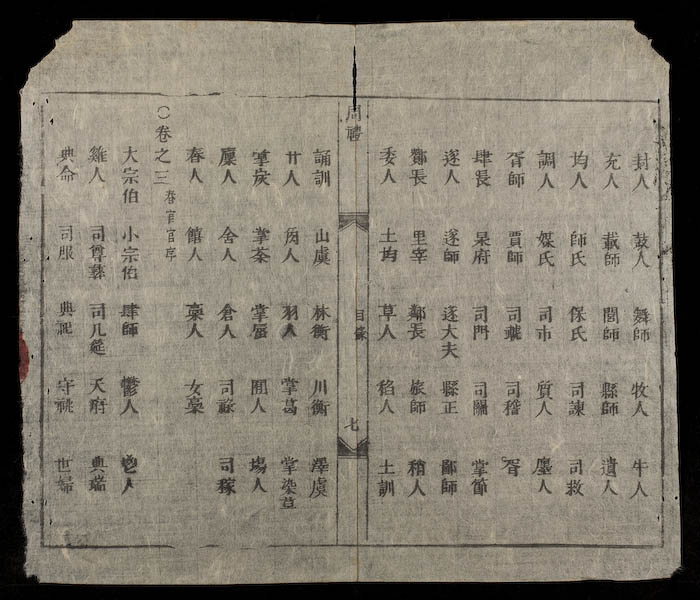 封人 鼓人 舞師 牧人 牛人
充人 載師 閭師 縣師 遺人
均人 師氏 保氏 司諫 司救
調人 媒氏 司市 質人 廛人
胥師 賈師 司虣 司稽 胥
肆長 泉府 司門 司關 掌節
遂人 遂師 遂大夫 縣正 鄙師
酇長 里宰 鄰長 旅師 稍人
委人 土均 草人 稻人 土訓
周禮 目錄 七
誦訓 山虞 林衡 川衡 澤虞
廿人 角人 羽人 掌葛 掌染草
掌炭 掌荼 掌蜃 囿人 場人
廩人 舍人 倉人 司祿 司稼
舂人 饎人 槀人 女槀
○卷之三 春官官序
大宗伯 小宗伯 肆師 鬱人 鬯人
雞人 司尊彝 司几筵 天府 典瑞
典命 司服 典祀 守祧 世婦